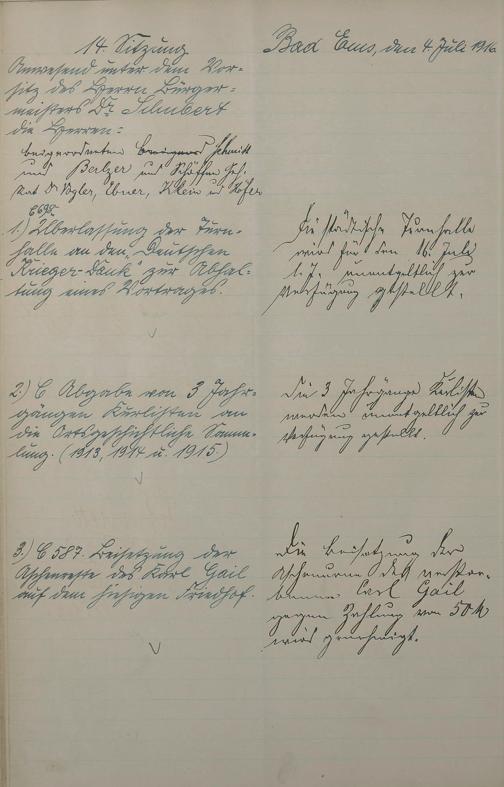 14. Sitzung
Bad Ems, den 4. Juli 1916
Anwesend unter dem Vor-
sitz des Herrn Bürger-
meisters Dr. Schubert
die Herren:
beigeordneten Schmitt
und Balzer und Schöffen Geh.
Rat Dr. Vogler, Ebner, Klein und Höfer
C 698.
1.) Überlassung der Turn-
halle an den "Deutschen
Krieger-Dank" zur Abhal-
tung eines Vortrages.
Die städtische Turnhalle
wird für den 16. Juli
l. J. unentgeltlich zur
Verfügung gestellt.
2.) C Abgabe von 3 Jahr-
gängen Kurlisten an
die Ortsgeschichtliche Samm-
lung. (1913, 1914 u. 1915.)
Die 3 Jahrgänge Kurlisten
werden unentgeltlich zur
Verfügung gestellt.
3.) C 587. Beisetzung der
Aschenreste des Karl Gail
auf dem hiesigen Friedhof.
Die Beisetzung der
Aschenurne des verstor-
benen Carl Gail
gegen Zahlung von 50 M
wird genehmigt.